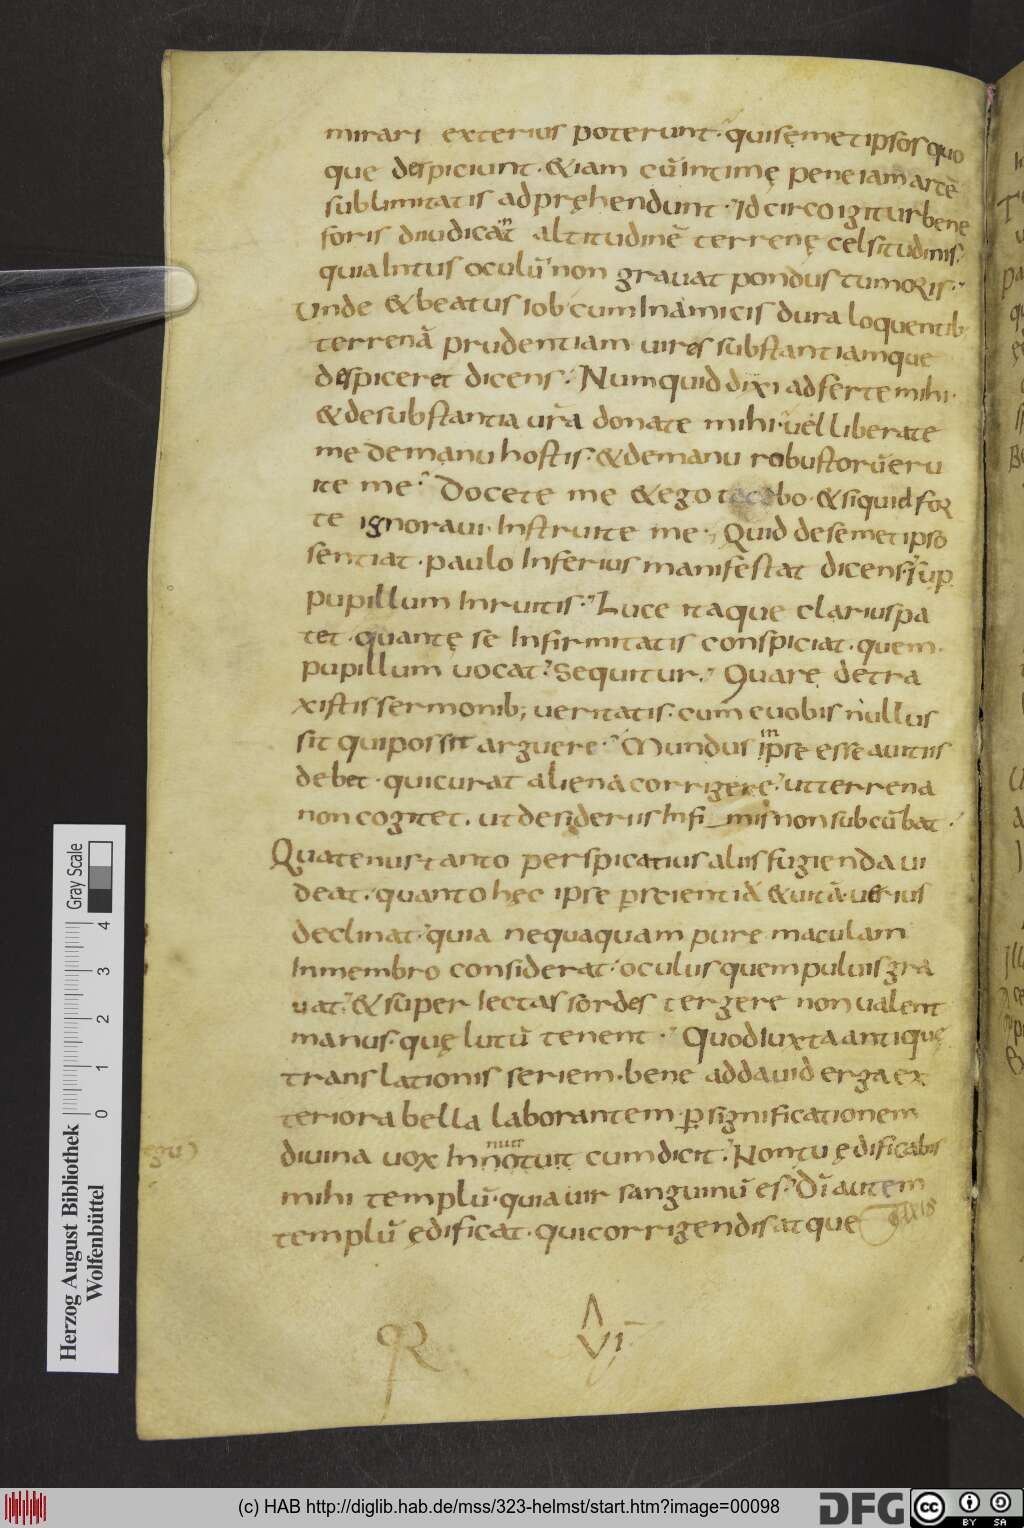 mirari exterius poterunt · quisemetipsos quo
que despiciunt · & iam cū intimę pene iam artē
sublimitatis adpręhendunt · Idcirco igitur bene
foris diiudicant altitudinē terrenę celsitudinis ·
quia Intus oculū non grauat pondus tumoris ·
Unde & beatus Iob cum Inamicis dura loquentib;
terrenā prudentiam uires substantiamque
despiceret dicens · Numquid dixi adferte mihi ·
& de substantia urā donate mihi · uel liberate
me de manu hostis · & de manu robustorū eru
ite me · Docete me & ego tacebo · & siquid for
te ignoraui · Instruite me · Quid de semetipso
sentiat · paulo Inferius manifestat dicens · sup
pupillum Inruitis · Luce itaque clarius pa
tet · quantę se Infirmitatis conspiciat · quem ·
pupillum uocat · Sequitur · Quare detra
xistis sermonib; ueritatis · cum euobis nullus
sit qui possit arguere · Mundus in ipse esse a uitiis
debet · qui curat aliena corrigere · ut terrena
non cogitet · ut desideriis Infimis non subcūbat ·
Quatenus tanto perspicatius aliis fugienda ui
deat · quanto hęc ipse p scientiā & uitā · uerius
declinat · quia nequaquam pure maculam
In membro considerat · oculus quem puluis gra
uat · & super lectas sordes tergere non ualent
manus · quę lutū tenent · Quod Iuxta antiquę
translationis seriem · bene ad dauid erga ex
teriora bella laborantem · p significationem
diuina uox Innotuit nuit cum dicit · Non tu ędificabis
mihi templū · quia uir sanguinū es · Dī autem
templū ędificat · qui corrigendis atque
qR VI
Gray Scale
0 1 2 3 4
Herzog August Bibliothek
Wolfenbüttel
(c) HAB http://diglib.hab.de/mss/323-helmst/start.htm?image=00098
DFG
cc BY SA